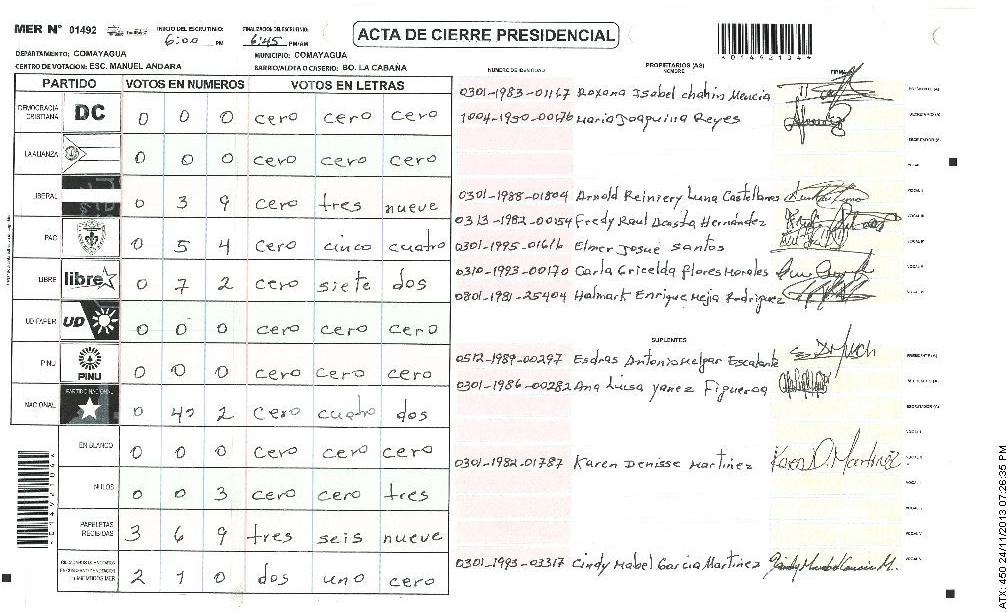 MER N° 01492
INICIO DEL ESCRUTINIO: 6:00 PM
FINALIZACION DEL ESCRUTINIO: 6:45 PM/AM
ACTA DE CIERRE PRESIDENCIAL
DEPARTAMENTO: COMAYAGUA
MUNICIPIO: COMAYAGUA
CENTRO DE VOTACION: ESC. MANUEL ANDARA
BARRIO/ALDEA O CASERIO: BO. LA CABAÑA
PARTIDO VOTOS EN NUMEROS VOTOS EN LETRAS
DEMOCRACIA CRISTIANA DC 0 0 0 cero cero cero
LA ALIANZA 0 0 0 cero cero cero
LIBERAL 0 3 9 cero tres nueve
PAC 0 5 4 cero cinco cuatro
LIBRE libre 0 7 2 cero siete dos
UD FAPER UD 0 0 0 cero cero cero
PINU PINU 0 0 0 cero cero cero
NACIONAL PARTIDO NACIONAL 0 42 2 cero cuatro dos
EN BLANCO 0 0 0 cero cero cero
NULOS 0 0 3 cero cero tres
PAPELETAS RECIBIDAS 3 6 9 tres seis nueve
2 1 0 dos uno cero
NUMERO DE IDENTIDAD
PROPIETARIOS (AS)
NOMBRE
FIRMA
0301-1983-01167 Roxana Isabel chahin Mencia
1004-1950-00176 Maria Joaquina Reyes
0301-1988-01804 Arnold Reiniery Luna Castellanos
0313-1982-00154 Fredy Raul Acosta Hernández
0301-1995-01616 Elmer Josué Santos
0310-1993-00170 Carla Gricelda flores Morales
0801-1981-25404 Halmark Enrique Mejia Rodriguez
SUPLENTES
0512-1989-00297 Esdras Antonio Melgar Escalante
0301-1986-00282 Ana Luisa Yanez Figueroa
0301-1982-01787 Karen Denisse Martinez Karen D. Martinez
0301-1993-03317 Cindy Mabel Garcia Martinez
ATX: 450 24/11/2013 07:26:35 PM